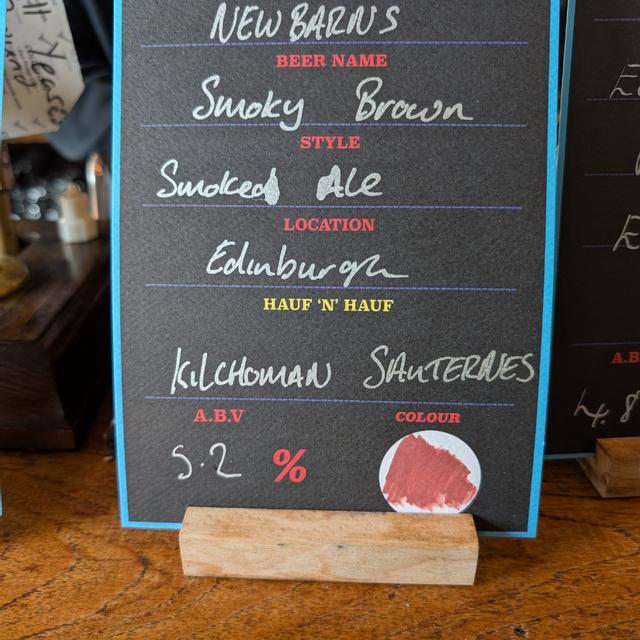 NEWBARNS
BEER NAME
Smoky Brown
STYLE
Smoked Ale
LOCATION
Edinburgh
HAUF 'N' HAUF
KILCHOMAN SAUTERNES
A.B.V COLOUR
5.2 %
A.B
4.8